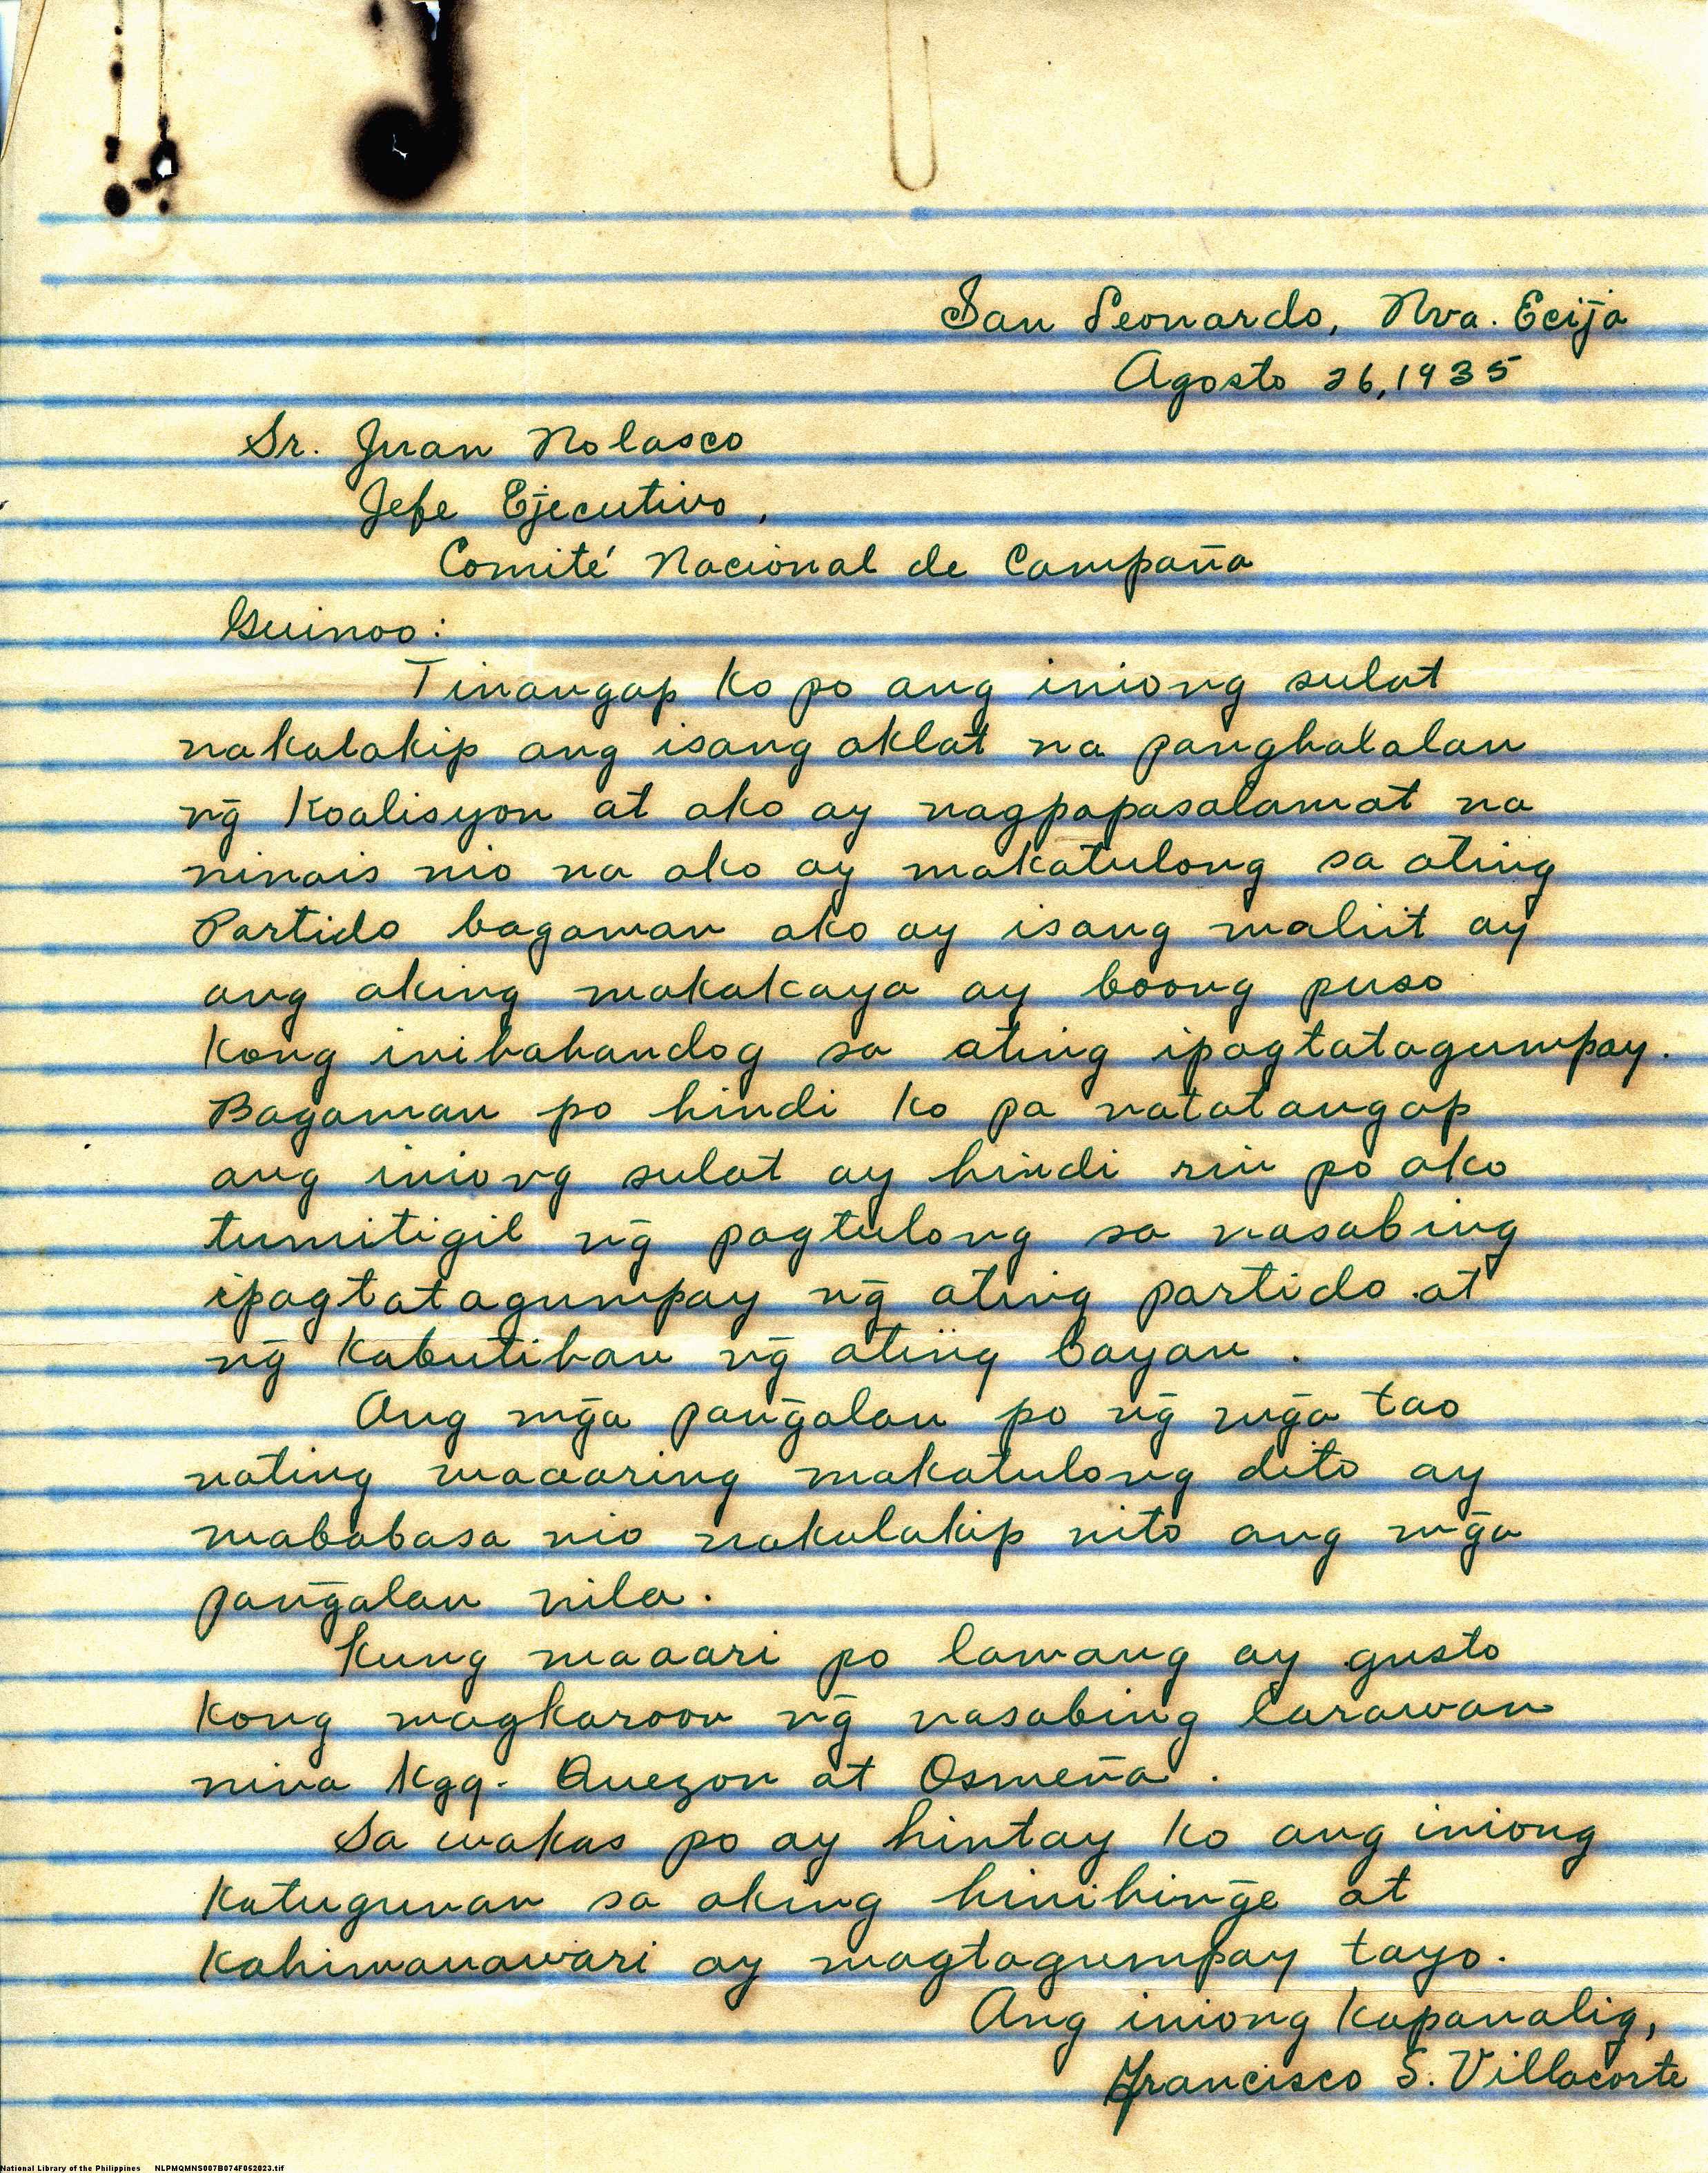 San Leonardo, Nva. Ecija
Agosto 26, 1935
Sr. Juan Nolasco
Jefe Ejecutivo,
Comité Nacional de Campaña
Guinoo:
Tinangap ko po ang iniong sulat
nakalakip ang isang aklat na panghalalan
ng̃ Koalisyon at ako ay nagpapasalamat na
ninais nio na ako ay makatulong sa ating
Partido bagaman ako ay isang maliit ay
ang aking makakaya ay boong puso
kong inihahandog sa ating ipagtatagumpay.
Bagaman po hindi ko pa natatangap
ang iniong sulat ay hindi rin po ako
tumitigil ng̃ pagtulong sa nasabing
ipagtatagumpay ng̃ ating partido at
ng̃ kabutihan ng̃ ating bayan.
Ang mg̃a pang̃alan po ng̃ mg̃a tao
nating maaaring makatulong dito ay
mababasa nio nakalakip nito ang mg̃a
pang̃alan nila.
Kung maaari po lamang ay gusto
kong magkaroon ng̃ nasabing larawan
nina Kgg. Quezon at Osmeña.
Sa wakas po ay hintay ko ang iniong
katugunan sa aking hinihing̃e at
kahimanawari ay magtagumpay tayo.
Ang iniong kapanalig,
Francisco S. Villacorte
National Library of the Philippines NLPMQMNS007B074F052023.tif